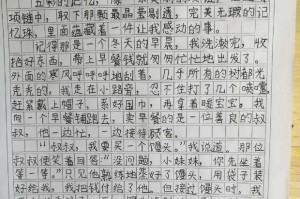 五彩的记忆，像
项链中，取下那颗最晶莹剔透，完美无瑕的记
忆珠，里面蕴藏着一件让我感动的事。
记得那是一个冬天的早晨，我洗漱完，收
拾好东西，带上早餐钱就匆匆忙忙地出发了。
外面的寒风呼呼呼地刮着，几乎所有的树都光
秃秃的，我走在小路旁，忍不住打了几个喷嚏，
赶紧戴上帽子，系好围巾，再拿着暖宝宝，我
向一个早餐铺跑去，卖早餐的是一位善良的叔
叔，他一边忙，一边接待顾客。
“叔叔，我要买一个馒头。”我说道。那位
叔叔便笑着回答：“没问题，小妹妹，你先坐着
等一等。”只见他熟练地蒸好了馒头，用袋子装
好给我，我把钱付给了他。但接过馒头时，我